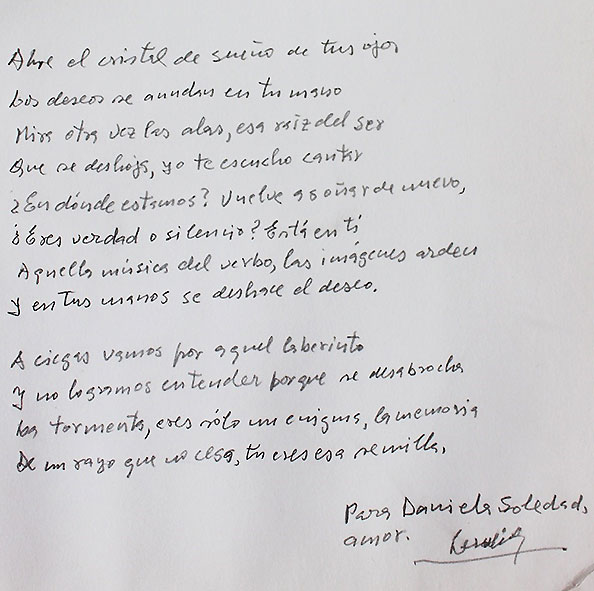 Abre el cristal de sueño de tus ojos
Los deseos se anudan en tu mano
Mira otra vez las alas, esa raíz del ser
Que se deshoja, yo te escucho cantar
¿En dónde estamos? Vuelve a soñar de nuevo,
¿Eres verdad o silencio? Está en tí
Aquella música del verbo, las imágenes arden
Y en tus manos se deshace el deseo.
A ciegas vamos por aquel laberinto
Y no logramos entender porque se desabrocha
La tormenta, eres sólo un enigma, la memoria
De un rayo que no cesa, tu eres esa semilla.
Para Daniela Soledad,
amor.